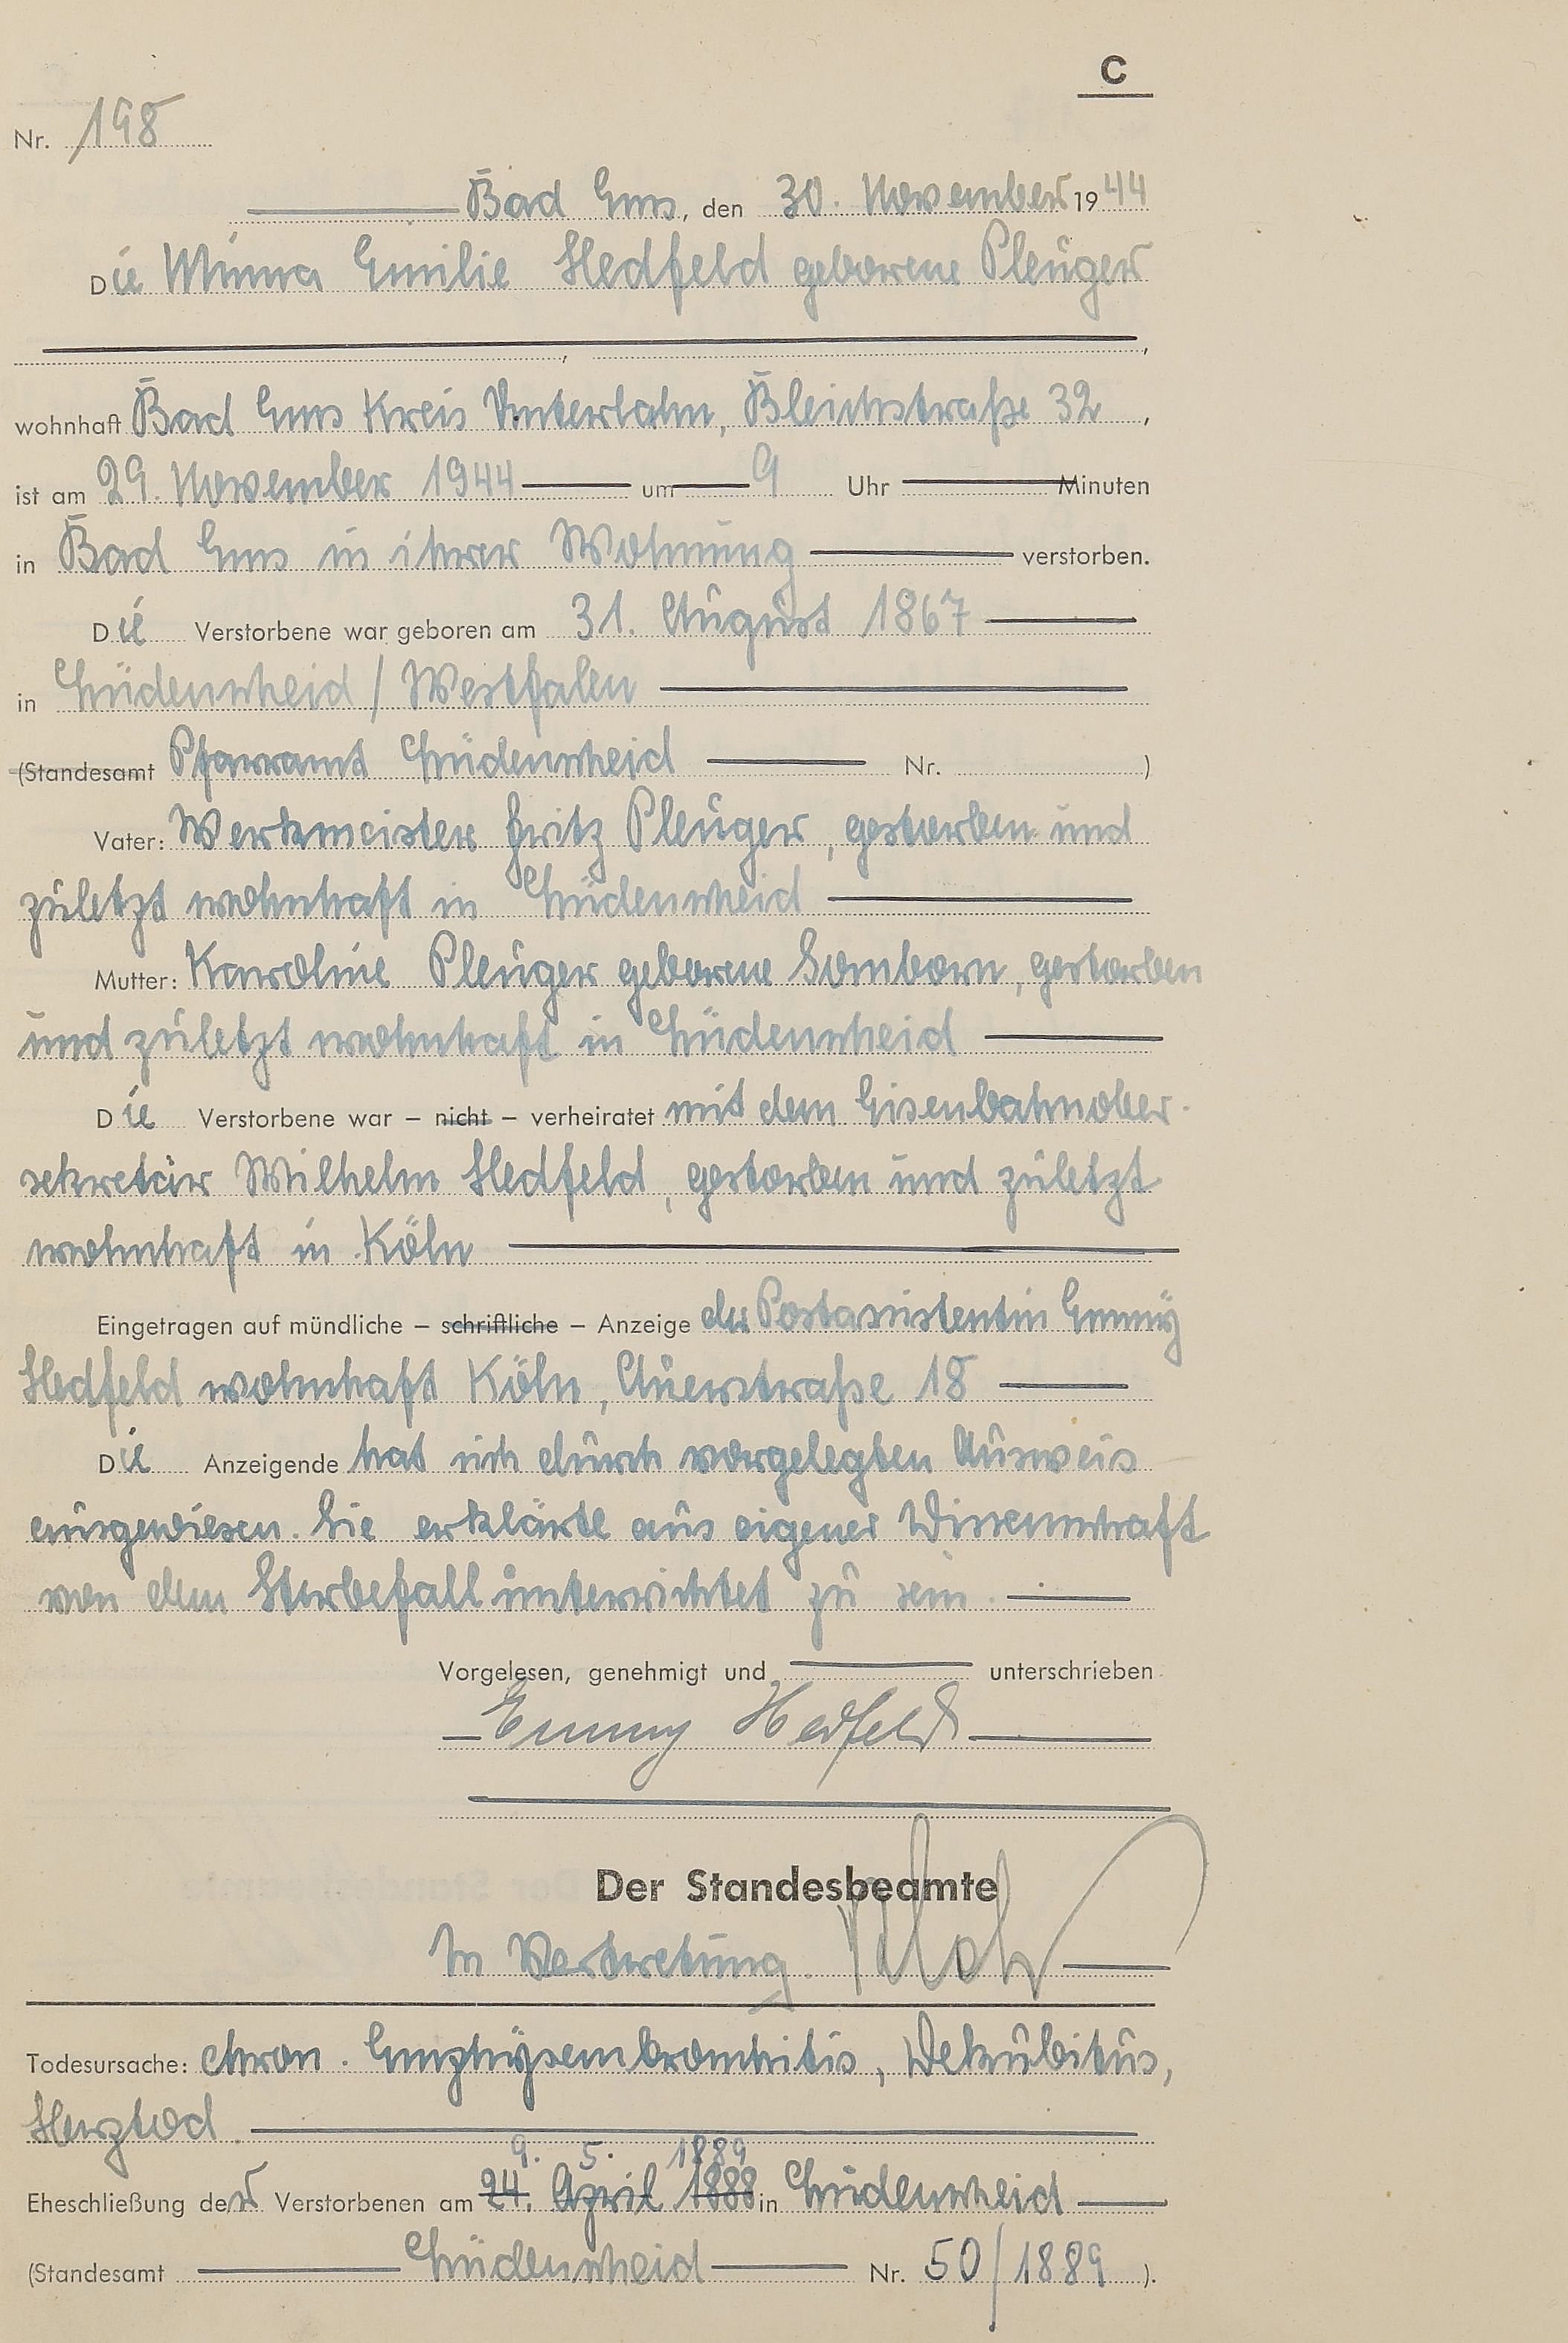 C
Nr. 198
Bad Ems, den 30. November 1944
Die Minna Emilie Hedfeld geborene Pleuger
wohnhaft Bad Ems Kreis Unterlahn, Bleichstraße 32,
ist am 29. November 1944 um 9 Uhr Minuten
in Bad Ems in ihrer Wohnung verstorben.
Die Verstorbene war geboren am 31. August 1867
in Lüdenscheid / Westfalen
(Standesamt Pfarramt Lüdenscheid Nr. )
Vater: Werkmeister Fritz Pleuger, gestorben und
zuletzt wohnhaft in Lüdenscheid
Mutter: Karoline Pleuger geborene Somborn, gestorben
und zuletzt wohnhaft in Lüdenscheid
Die Verstorbene war – nicht – verheiratet mit dem Eisenbahnober-
sekretär Wilhelm Hedfeld, gestorben und zuletzt
wohnhaft in Köln
Eingetragen auf mündliche – schriftliche – Anzeige der Postassistentin Emmy
Hedfeld wohnhaft Köln, Auerstraße 18
Die Anzeigende hat sich durch vorgelegten Ausweis
ausgewiesen. Sie erklärte aus eigener Wissenschaft
von dem Sterbefall unterrichtet zu sein.
Vorgelesen, genehmigt und unterschrieben
Emmy Hedfeld
Der Standesbeamte
In Vertretung.
Todesursache: chron. Emphysembronchitis, Dekubitus,
Herztod.
9. 5. 1889
Eheschließung der Verstorbenen am 24. April 1888 in Lüdenscheid
(Standesamt Lüdenscheid Nr. 50/1889 ).